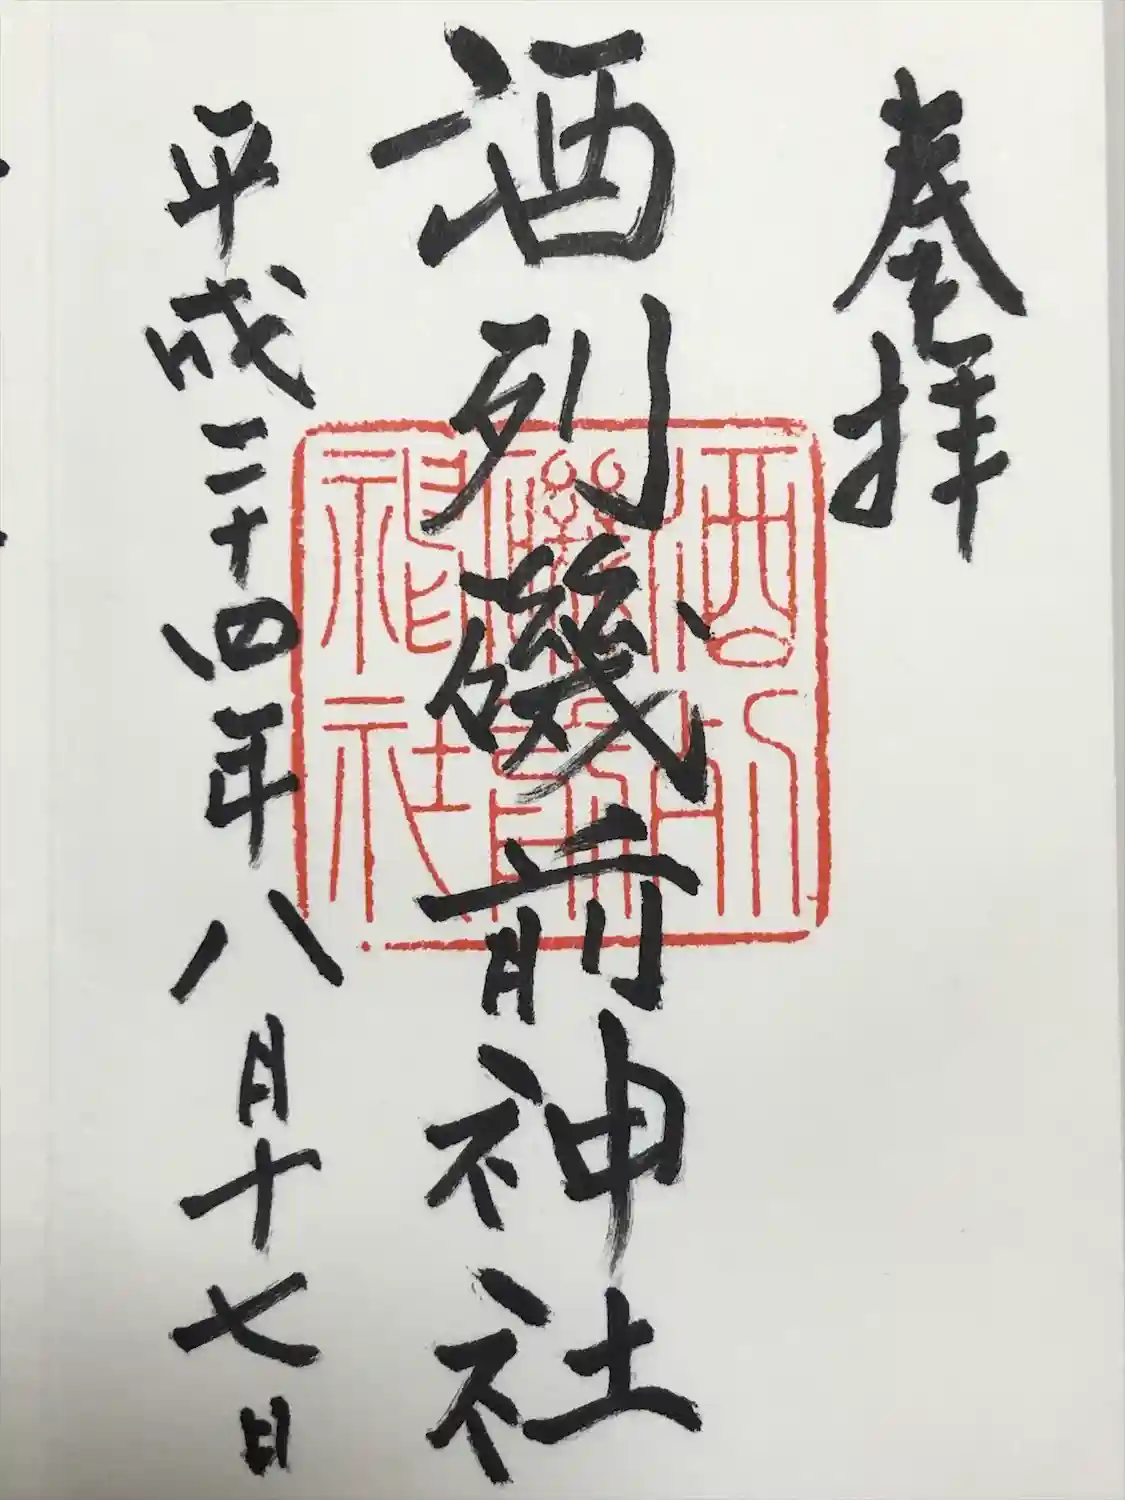 奉拝
酒列磯前神社
平成二十四年八月十七日
酒列
磯前
神社